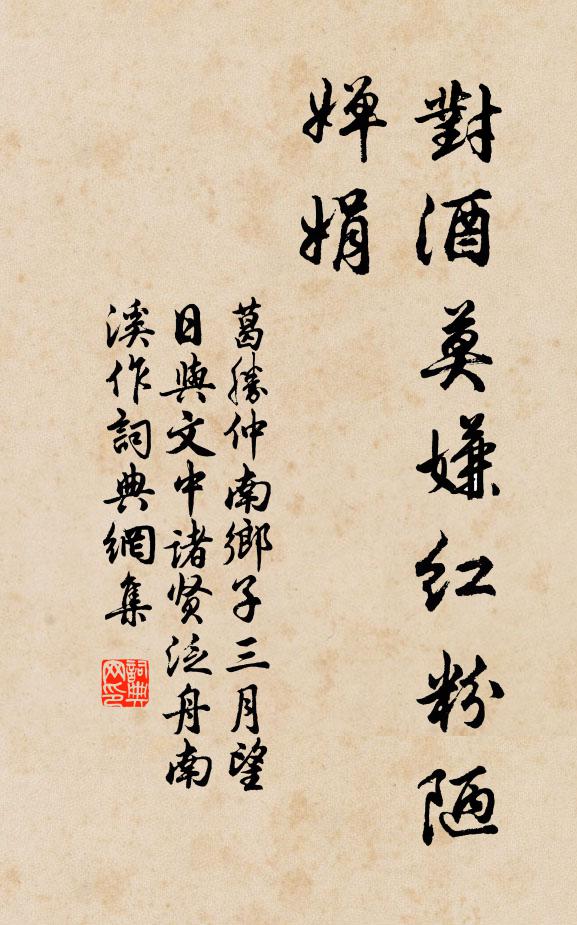 對酒莫嫌红粉陋
婵娟
葛勝仲南鄉子三月望
日與文中諸贤泛舟南
溪作詞典網集
詞典
网印